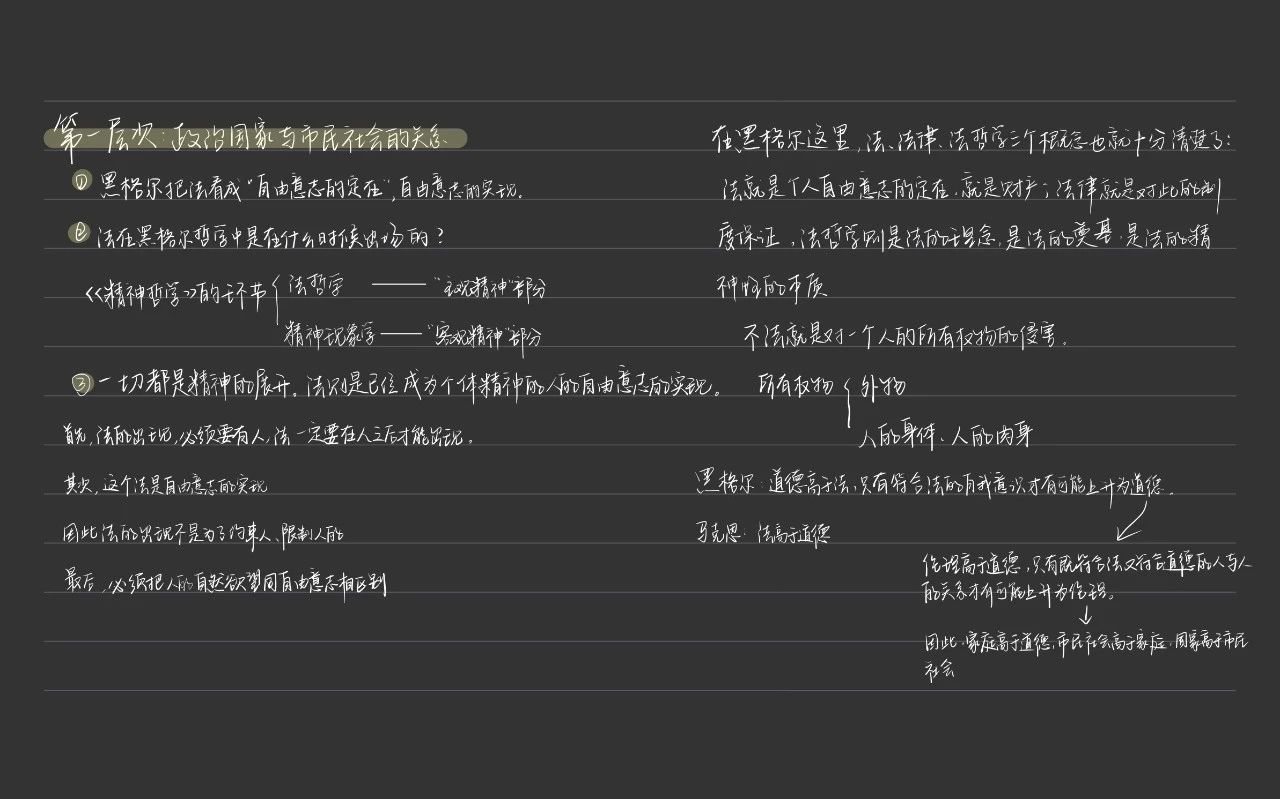 第一层次：政治国家与市民社会的关系
① 黑格尔把法看成“自由意志的定在”，自由意志的实现。
② 法在黑格尔哲学中是在什么时候出场的？
《精神哲学》的环节
法哲学 ——“主观精神”部分
精神现象学 ——“客观精神”部分
③ 一切都是精神的展开。法则是已经成为个体精神的人的自由意志的实现。
首先，法的出现，必须要有人，法一定要在人之后才能出现。
其次，这个法是自由意志的实现
因此法的出现不是为了约束人、限制人的
最后，必须把人的自然欲望同自由意志相区别
在黑格尔这里，法、法律、法哲学三个概念也就十分清楚了：
法就是个人自由意志的定在，就是财产；法律就是对此的制
度保证，法哲学则是法的理念，是法的奠基，是法的精
神性的本质
不法就是对一个人的所有权物的侵害。
所有权物
外物
人的身体、人的肉身
黑格尔：道德高于法，只有符合法的自我意识才有可能上升为道德。
马克思：法高于道德
伦理高于道德，只有既符合法又符合道德的人与人
的关系才有可能上升为伦理。
因此，家庭高于道德，市民社会高于家庭，国家高于市民
社会